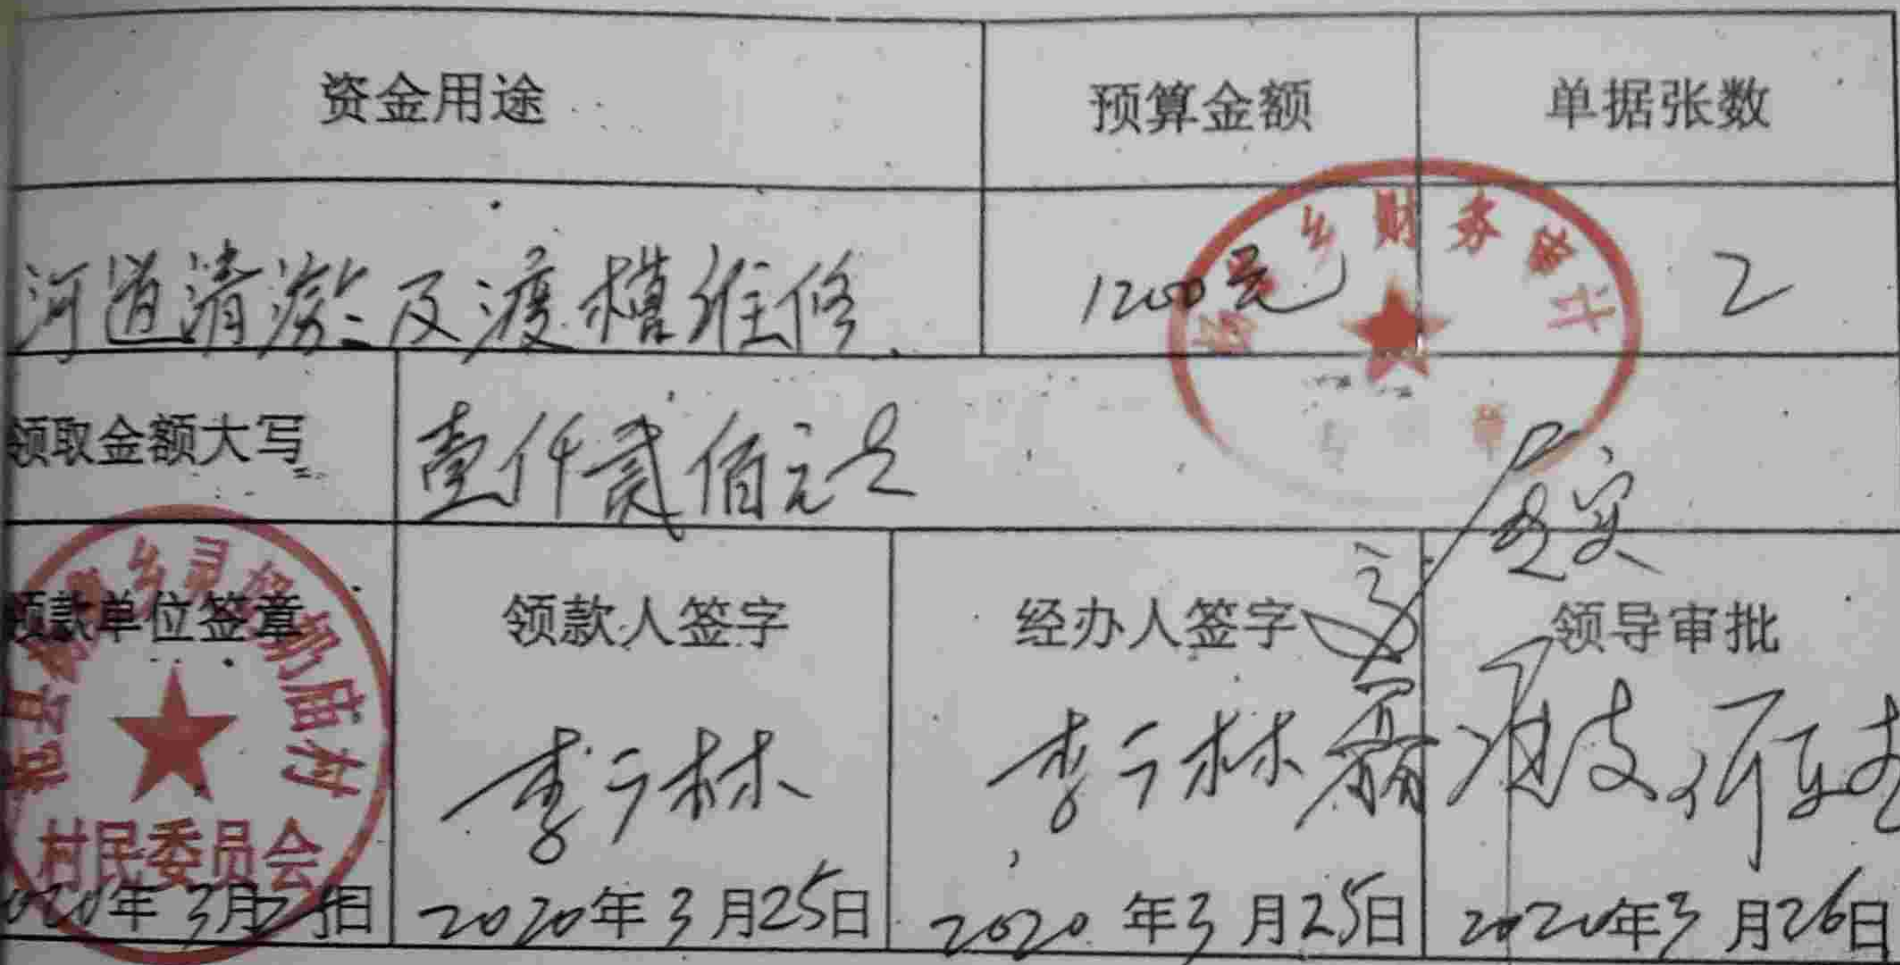 资金用途 预算金额 单据张数
河道清淤及渡槽维修 1200元 2
乡财务审计
领取金额大写 壹仟贰佰元正
属实
领款单位签章 领款人签字 经办人签字 领导审批
乡灵 奶庙村
村民委员会
李广林 李广林 准支
2020年3月25日 2020年3月25日 2020年3月25日 2020年3月26日